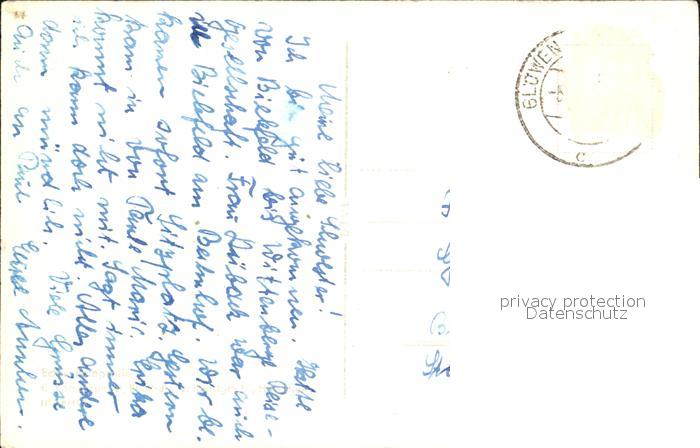 Meine liebe Schwester!
Ich bin gut angekommen. Hatte
von Bielefeld bis Wittenberge Reise-
gesellschaft. Frau war auch
in Bielefeld am Bahnhof. Wir be-
kamen sofort Sitzplatz. Gestern
kam in von Tante Marie. Erika
kommt nicht mit. Sagt immer
ich kann doch nicht. Alles andere
dann mündlich. Viele Grüsse
auch an Paul
BLÜWEN
c
privacy protection
Datenschutz